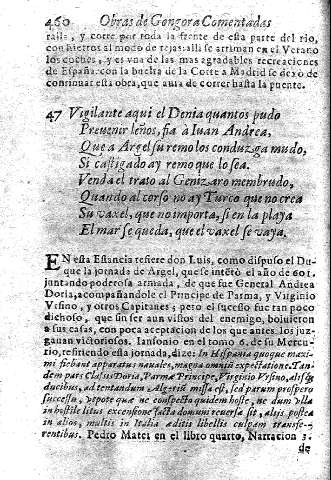 460 Obras de Gongora Comentadas
ralla, y corre por toda la frente de esta parte del rio,
con hierros al modo de rejas, alli se arriman en el Verano
los coches, y es vna de las mas agradables recreaciones
de España. con la buelta de la Corte a Madrid se dexò de
continuar esta obra, que auia de correr hasta la puente.
47 Vigilante aqui el Denia quantos pudo
Preuenir leños, fia a Iuan Andrea,
Que a Argel su remo los conduzga mudo,
Si castigado ay remo que lo sea.
Venda el trato al Genizaro membrudo,
Quando al corso no ay Turco que no crea
Su vaxel, que no importa, si en la playa
El mar se queda, que el vaxel se vaya.
EN esta Estancia refiere don Luis, como dispuso el Du-
que la jornada de Argel, que se intētò el año de 601.
juntando poderosa armada, de que fue General Andrea
Doria, acompañandole el Principe de Parma, y Virginio
Vrsino, y otros Capitanes; pero el sucesso fue tan poco
dichoso, que sin ser aun vistos del enemigo, boluieron
a sus casas, con poca aceptacion de los que antes los juz-
gauan victoriosos. Iansonio en el tomo 6. de su Mercu-
rio, refiriendo esta jornada, dize: In Hispania quoque maxi-
mi fiebant apparatus nauales, magna omniū expectatione. Tan-
dem pars Classis Doria, Parmæ Principe, Virginio Vrsino, alijsq;
ducibus, ad tentandum Algeriū missa est, sed parum prospero
successu, vtpote quæ ne conspecta quidem hoste, ne dum vlla
in hostile litus excensione facta domum reuersa sit, alijs postea
in alios, multis in Italia aditis libellis culpam transfe-
rentibus. Pedro Matei en el libro quarto, Narracion 3.
de